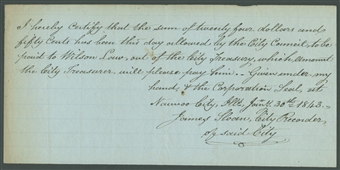 I hereby certify that the sum of twenty four dollars and
fifty Cents has been this day allowed by the City Council, to be
paid to Wilson Law, out of the City Treasury, which amount
the City Treasurer will please pay him. Given under my
hand & the Corporation Seal, at
Nauvoo City, Ill, Jany. 30th 1843.
James Sloan, City Recorder,
of said City